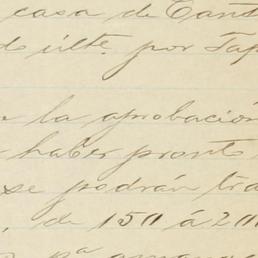 casa de Cant
do últº. por Tap
la aprobación
haber pronto
se podrán tra
, de 150 á 200
pª